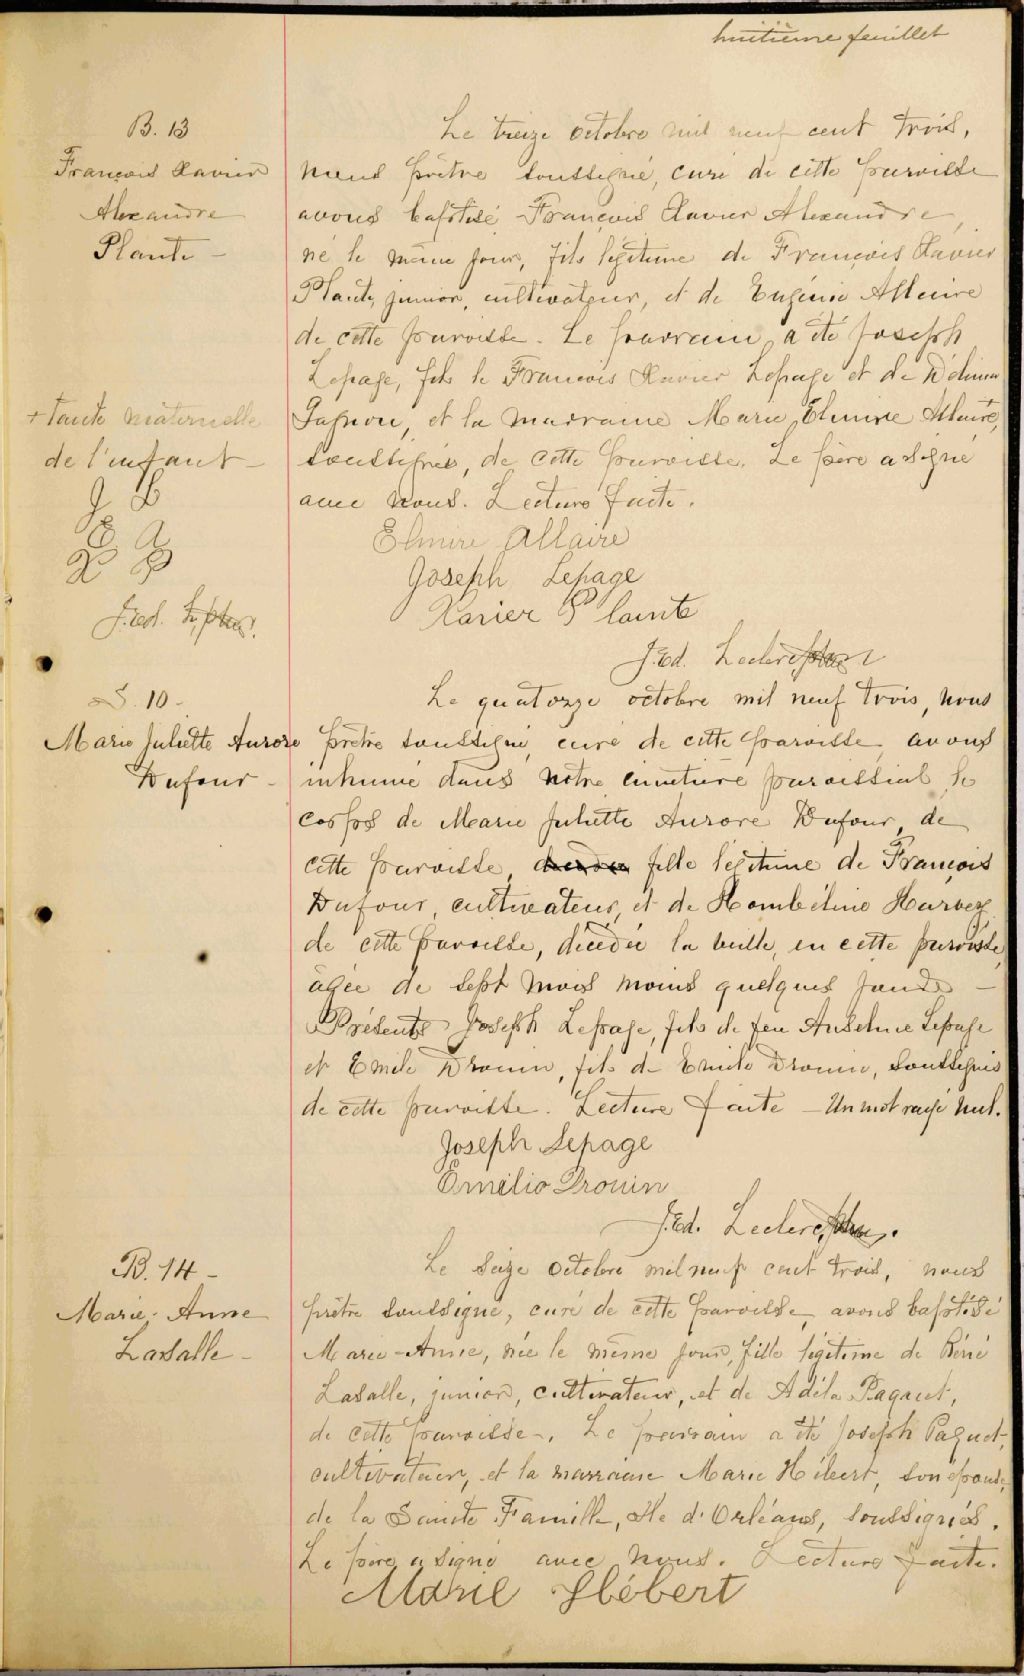 huitième feuillet
B. 13
François Xavier
Alexandre
Plante -
Le treize octobre mil neuf cent trois,
nous prêtre soussigné, curé de cette paroisse
avons baptisé François Xavier Alexandre,
né le même jour, fils légitime de François Xavier
Plante, junior, cultivateur, et de Eugénie Allaire
de cette paroisse. Le parrain a été Joseph
Lepage, fils de François Xavier Lepage et de Délima
Gagnon, et la marraine Marie Elmire Allaire,
soussignés, de cette paroisse. Le père a signé
avec nous. Lecture faite.
+ Tante maternelle
de l'enfant -
J L
E. A
X P
J. Ed. L. ptre.
Elmire Allaire
Joseph Lepage
Xavier Plante
J. Ed. Leclerc, ptre
S. 10 -
Marie Juliette Aurore
Dufour -
Le quatorze octobre mil neuf trois, nous
prêtre soussigné, curé de cette paroisse, avons
inhumé dans notre cimetière paroissial le
corps de Marie Juliette Aurore Dufour, de
cette paroisse, fille légitime de François
Dufour, cultivateur, et de Hombéline Harvey,
de cette paroisse, décédée la veille, en cette paroisse,
âgée de sept mois moins quelques jours -
Présents Joseph Lepage, fils de feu Anselme Lepage
et Emile Drouin, fils de Emile Drouin, soussignés
de cette paroisse. Lecture faite - Un mot rayé nul.
Joseph Lepage
Emilio Drouin
J. Ed. Leclerc, ptre.
B. 14 -
Marie-Anne
Lasalle -
Le seize octobre mil neuf cent trois, nous
prêtre soussigné, curé de cette paroisse, avons baptisé
Marie-Anne, née le même jour, fille légitime de Réné
Lasalle, junior, cultivateur, et de Adéla Paquet,
de cette paroisse -. Le parrain a été Joseph Paquet,
cultivateur, et la marraine Marie Hébert, son épouse,
de la Sainte Famille, Ile d'Orléans, soussignés.
Le père a signé avec nous. Lecture faite.
Marie Hébert